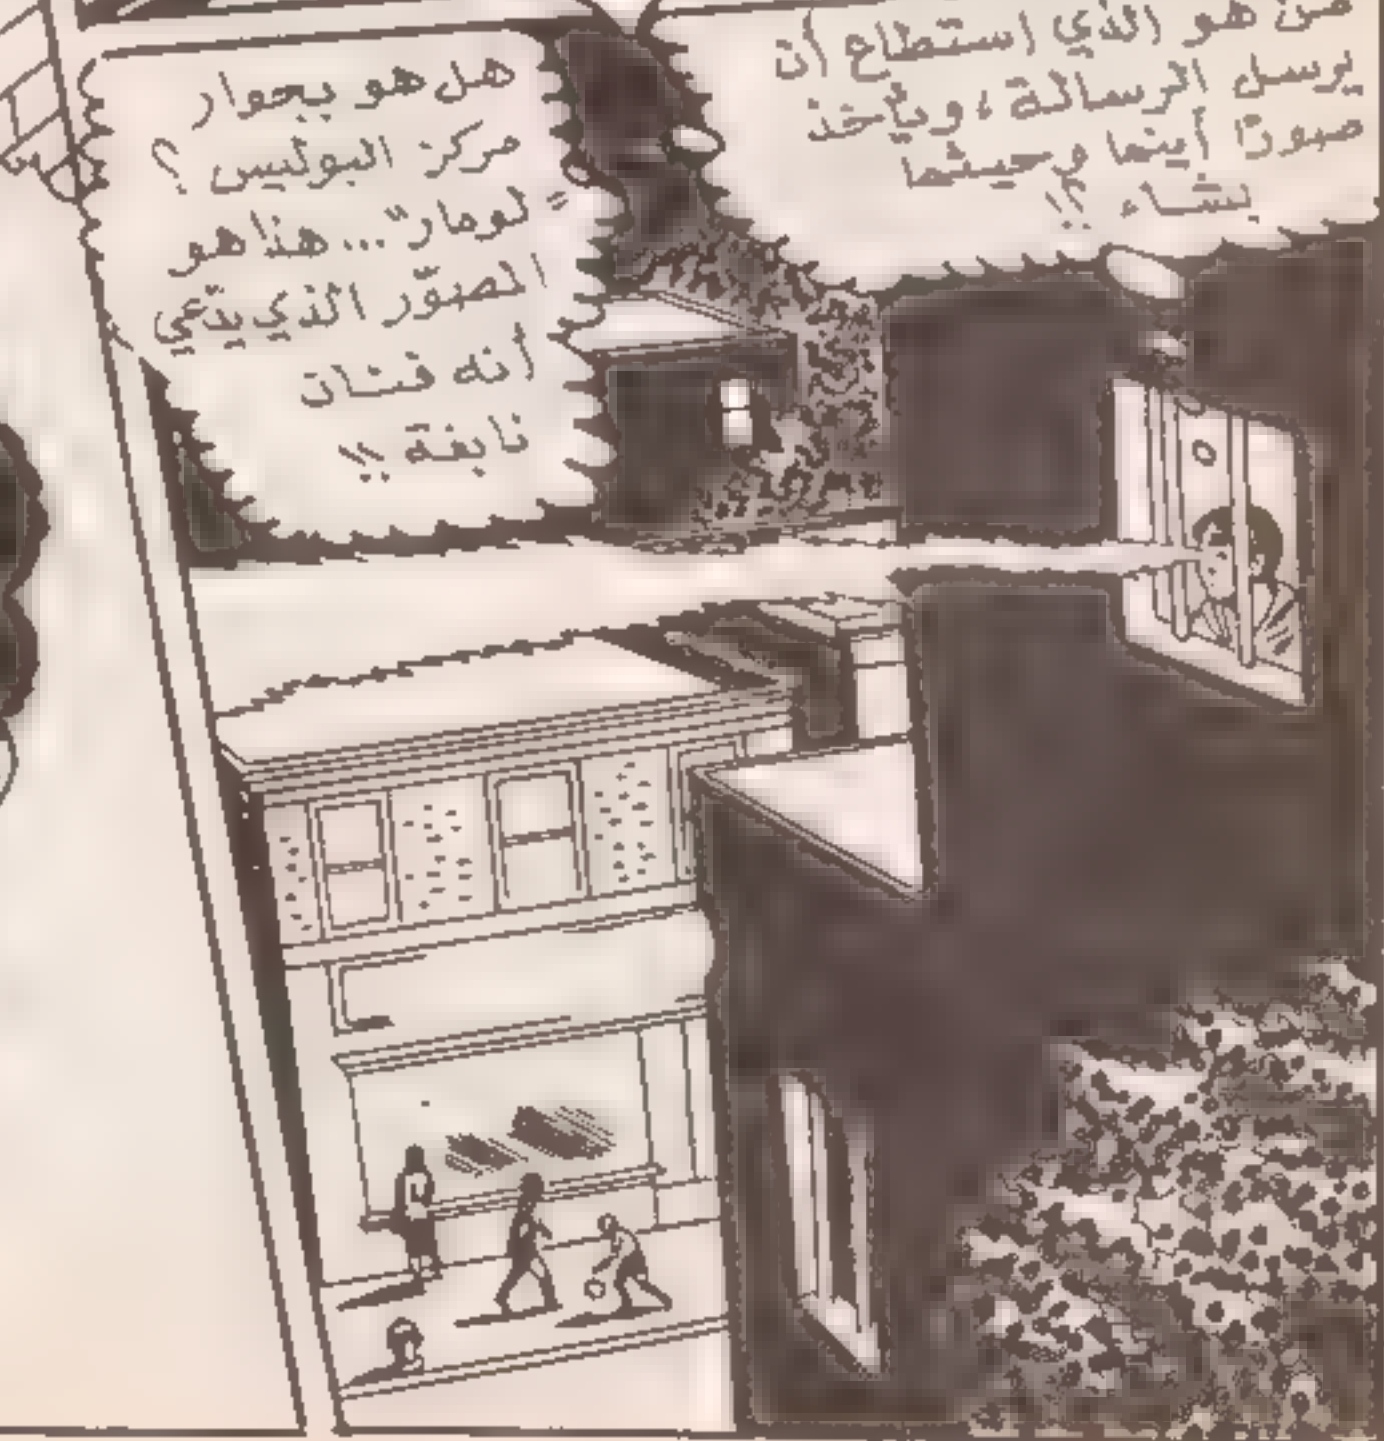 من هو الذي استطاع أن
يرسل الرسالة ، ويأخذ
صورًا أينما وحيثما
يشاء ؟!
هل هو بجوار
مركز البوليس ؟
"لومار"... هذا هو
المصوّر الذي يدّعي
أنه فنان
نابغة !!